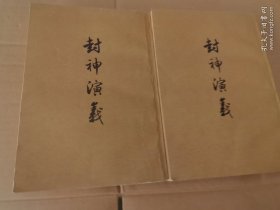 封神演義
封神演義
孔夫子旧书网